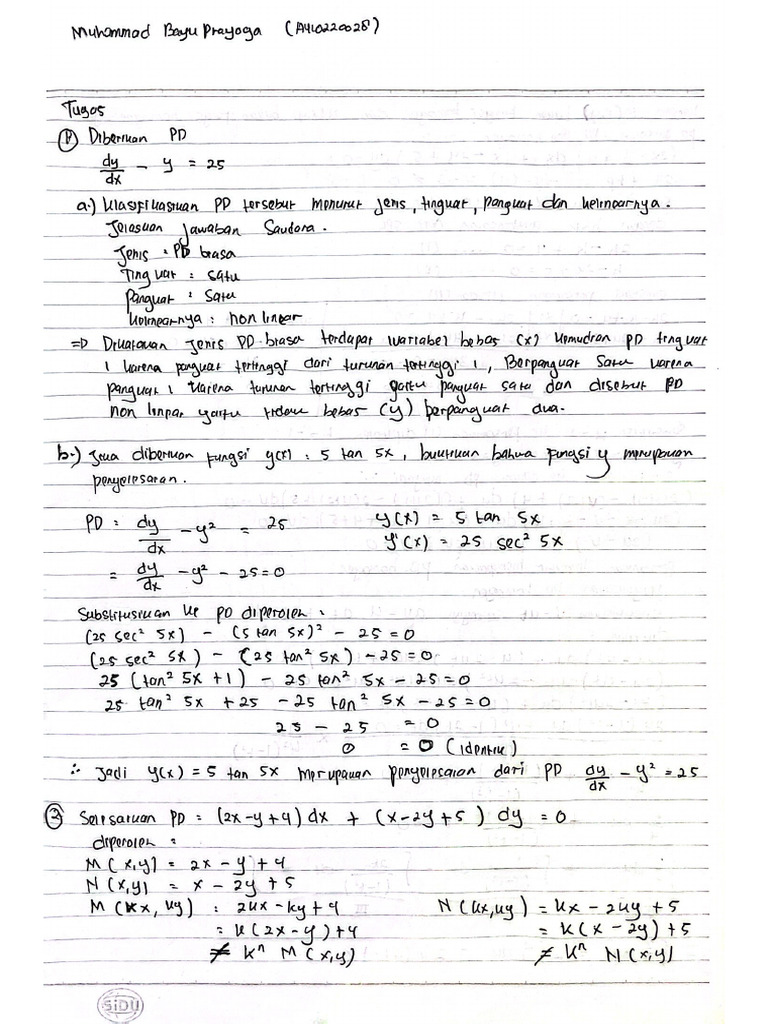 Muhammad Bayu Prayoga (A410220028)
Tugas
1) Diberikan PD
dy/dx - y = 25
a.) Klasifikasikan PD tersebut menurut jenis, tingkat, pangkat dan kelinearnya.
Jelaskan jawaban Saudara.
Jenis : PD biasa
Tingkat : satu
Pangkat : Satu
kelinearnya : non linear
⇒ Dikatakan Jenis PD biasa terdapat variabel bebas (x) kemudian PD tingkat
1 karena pangkat tertinggi dari turunan tertinggi 1, Berpangkat Satu karena
pangkat 1 karena turunan tertinggi yaitu pangkat satu dan disebut PD
non linear yaitu tidak bebas (y) berpangkat dua.
b.) Jika diberikan fungsi y(x) : 5 tan 5x, buktikan bahwa fungsi y merupakan
penyelesaian.
PD : dy/dx - y² = 25 y(x) = 5 tan 5x
y'(x) = 25 sec² 5x
= dy/dx - y² - 25 = 0
Substitusikan ke PD diperoleh :
(25 sec² 5x) - (5 tan 5x)² - 25 = 0
(25 sec² 5x) - (25 tan² 5x) - 25 = 0
25 (tan² 5x + 1) - 25 tan² 5x - 25 = 0
25 tan² 5x + 25 - 25 tan² 5x - 25 = 0
25 - 25 = 0
0 = 0 (identik)
∴ Jadi y(x) = 5 tan 5x merupakan penyelesaian dari PD dy/dx - y² = 25
3) Selesaikan PD = (2x-y+4) dx + (x-2y+5) dy = 0
diperoleh :
M(x,y) = 2x - y + 4
N(x,y) = x - 2y + 5
M(kx, ky) : 2kx - ky + 4 N(kx,ky) = kx - 2ky + 5
= k(2x - y) + 4 = k(x - 2y) + 5
≠ kⁿ M(x,y) ≠ kⁿ N(x,y)
SiDU